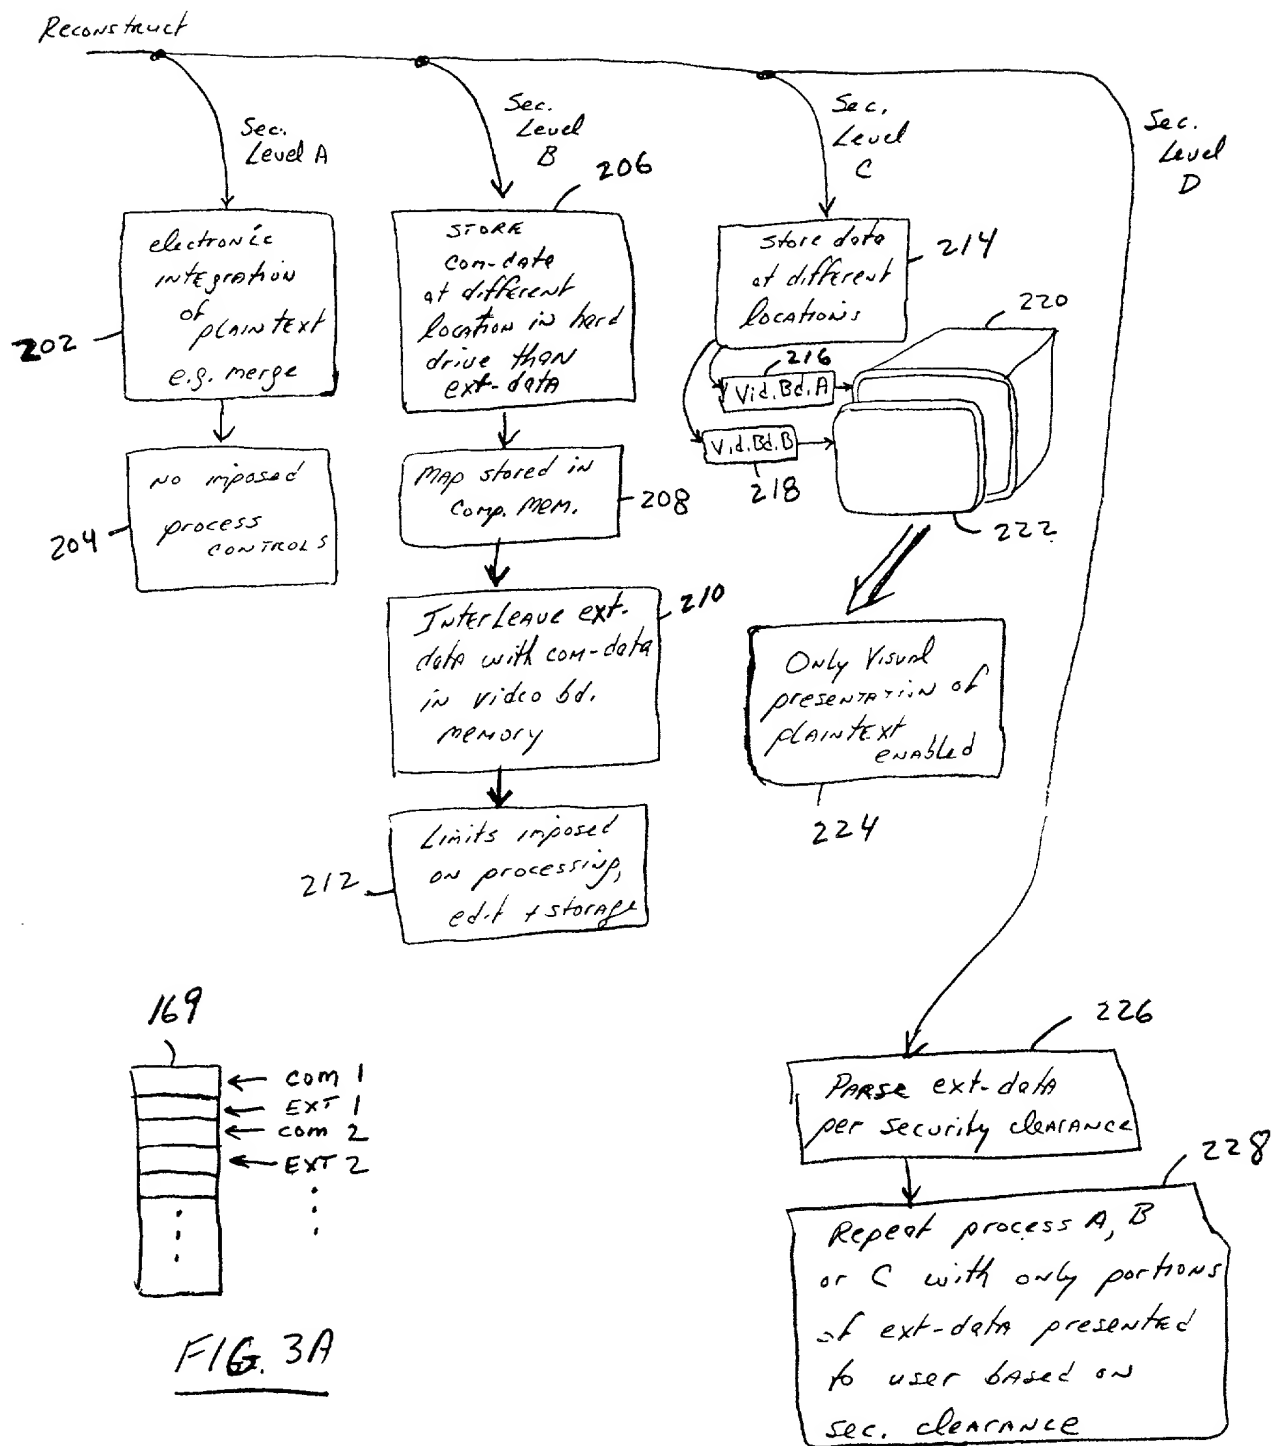 Reconstruct
Sec.
Level A
electronic
integration
of
plaintext
e.g. merge
202
No imposed
process
controls
204
Sec.
Level
B
206
STORE
com-date
at different
location in hard
drive than
ext-data
Map stored in
Comp. Mem.
208
Interleave ext-
data with com-data
in video bd.
memory
210
Limits imposed
on processing,
edit + storage
212
Sec.
Level
C
Store data
at different
locations
214
216
Vid. Bd. A
Vid. Bd. B
218
220
222
Only Visual
presentation of
plaintext
enabled
224
Sec.
Level
D
226
Parse ext-data
per security clearance
228
Repeat process A, B
or C with only portions
of ext-data presented
to user based on
sec. clearance
169
com 1
EXT 1
com 2
EXT 2
FIG. 3A